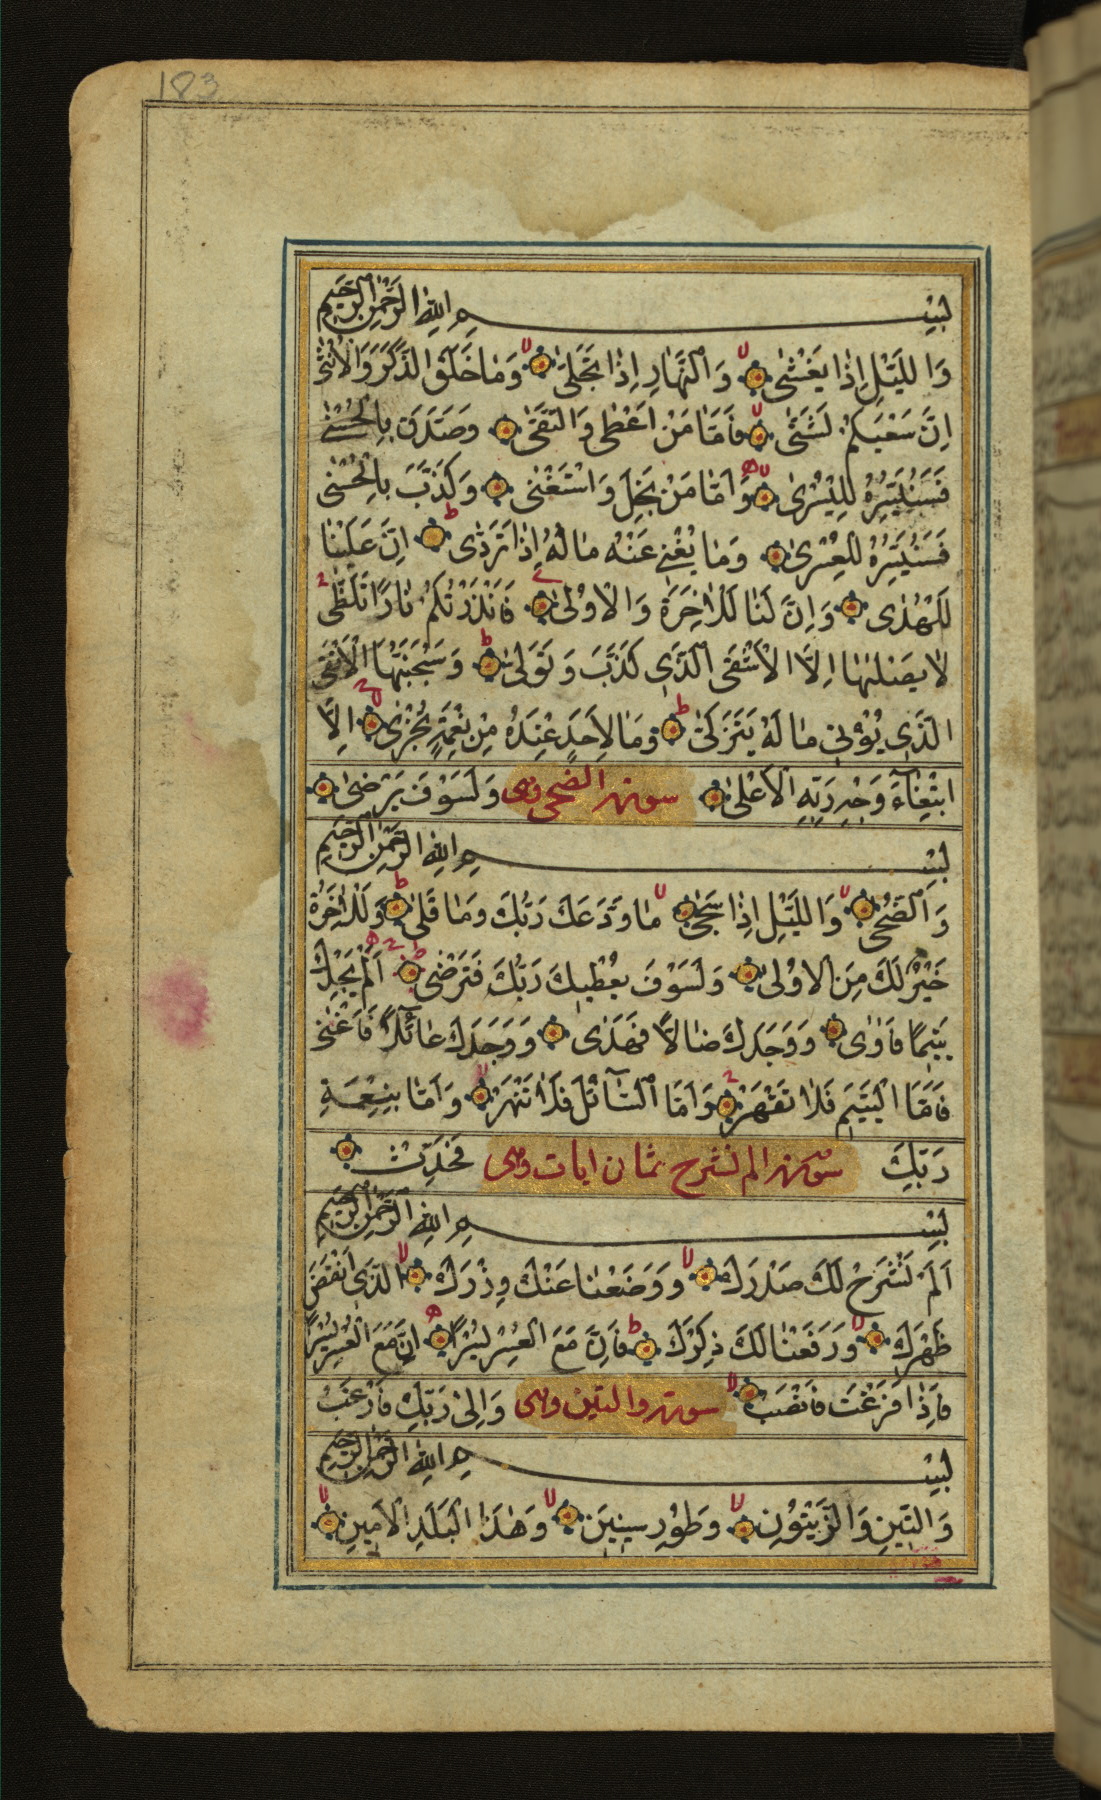 183
بِسْمِ اللهِ الرَّحْمٰنِ الرَّحِيمِ
وَاللَّيْلِ اِذَا يَغْشٰى وَالنَّهَارِ اِذَا تَجَلّٰى وَمَا خَلَقَ الذَّكَرَ وَالْاُنْثٰى
اِنَّ سَعْيَكُمْ لَشَتّٰى فَاَمَّا مَنْ اَعْطٰى وَاتَّقٰى وَصَدَّقَ بِالْحُسْنٰى
فَسَنُيَسِّرُهُ لِلْيُسْرٰى وَاَمَّا مَنْ بَخِلَ وَاسْتَغْنٰى وَكَذَّبَ بِالْحُسْنٰى
فَسَنُيَسِّرُهُ لِلْعُسْرٰى وَمَا يُغْنِي عَنْهُ مَالُهُ اِذَا تَرَدّٰى اِنَّ عَلَيْنَا
لَلْهُدٰى وَاِنَّ لَنَا لَلْاٰخِرَةَ وَالْاُوْلٰى فَاَنْذَرْتُكُمْ نَارًا تَلَظّٰى
لَا يَصْلٰىهَا اِلَّا الْاَشْقَى الَّذِي كَذَّبَ وَتَوَلّٰى وَسَيُجَنَّبُهَا الْاَتْقَى
الَّذِي يُؤْتِي مَالَهُ يَتَزَكّٰى وَمَا لِاَحَدٍ عِنْدَهُ مِنْ نِعْمَةٍ تُجْزٰى اِلَّا
ابْتِغَآءَ وَجْهِ رَبِّهِ الْاَعْلٰى سورة الضحى وهى وَلَسَوْفَ يَرْضٰى
بِسْمِ اللهِ الرَّحْمٰنِ الرَّحِيمِ
وَالضُّحٰى وَاللَّيْلِ اِذَا سَجٰى مَا وَدَّعَكَ رَبُّكَ وَمَا قَلٰى وَلَلْاٰخِرَةُ
خَيْرٌ لَكَ مِنَ الْاُوْلٰى وَلَسَوْفَ يُعْطِيكَ رَبُّكَ فَتَرْضٰى اَلَمْ يَجِدْكَ
يَتِيمًا فَاٰوٰى وَوَجَدَكَ ضَالًّا فَهَدٰى وَوَجَدَكَ عَائِلًا فَاَغْنٰى
فَاَمَّا الْيَتِيمَ فَلَا تَقْهَرْ وَاَمَّا السَّآئِلَ فَلَا تَنْهَرْ وَاَمَّا بِنِعْمَةِ
رَبِّكَ سورة الم نشرح ثمان ايات وهى فَحَدِّثْ
بِسْمِ اللهِ الرَّحْمٰنِ الرَّحِيمِ
اَلَمْ نَشْرَحْ لَكَ صَدْرَكَ وَوَضَعْنَا عَنْكَ وِزْرَكَ الَّذِي اَنْقَضَ
ظَهْرَكَ وَرَفَعْنَا لَكَ ذِكْرَكَ فَاِنَّ مَعَ الْعُسْرِ يُسْرًا اِنَّ مَعَ الْعُسْرِ يُسْرًا
فَاِذَا فَرَغْتَ فَانْصَبْ سورة والتين وهى وَاِلٰى رَبِّكَ فَارْغَبْ
بِسْمِ اللهِ الرَّحْمٰنِ الرَّحِيمِ
وَالتِّينِ وَالزَّيْتُوْنِ وَطُوْرِ سِينِينَ وَهٰذَا الْبَلَدِ الْاَمِينِ